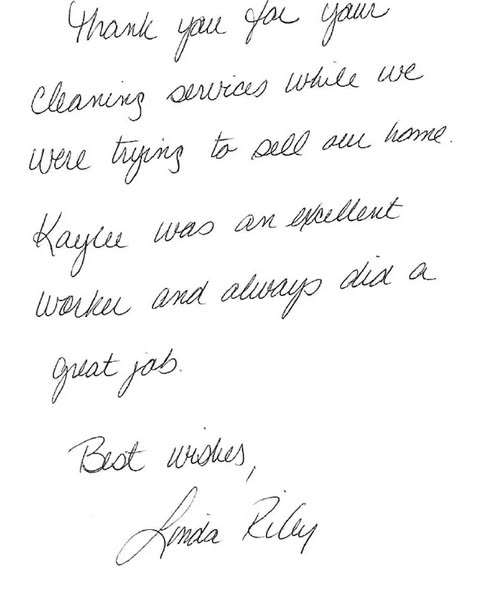 Thank you for your
cleaning services while we
were trying to sell our home.
Kaylee was an excellent
worker and always did a
great job.
Best wishes,
Linda Riley